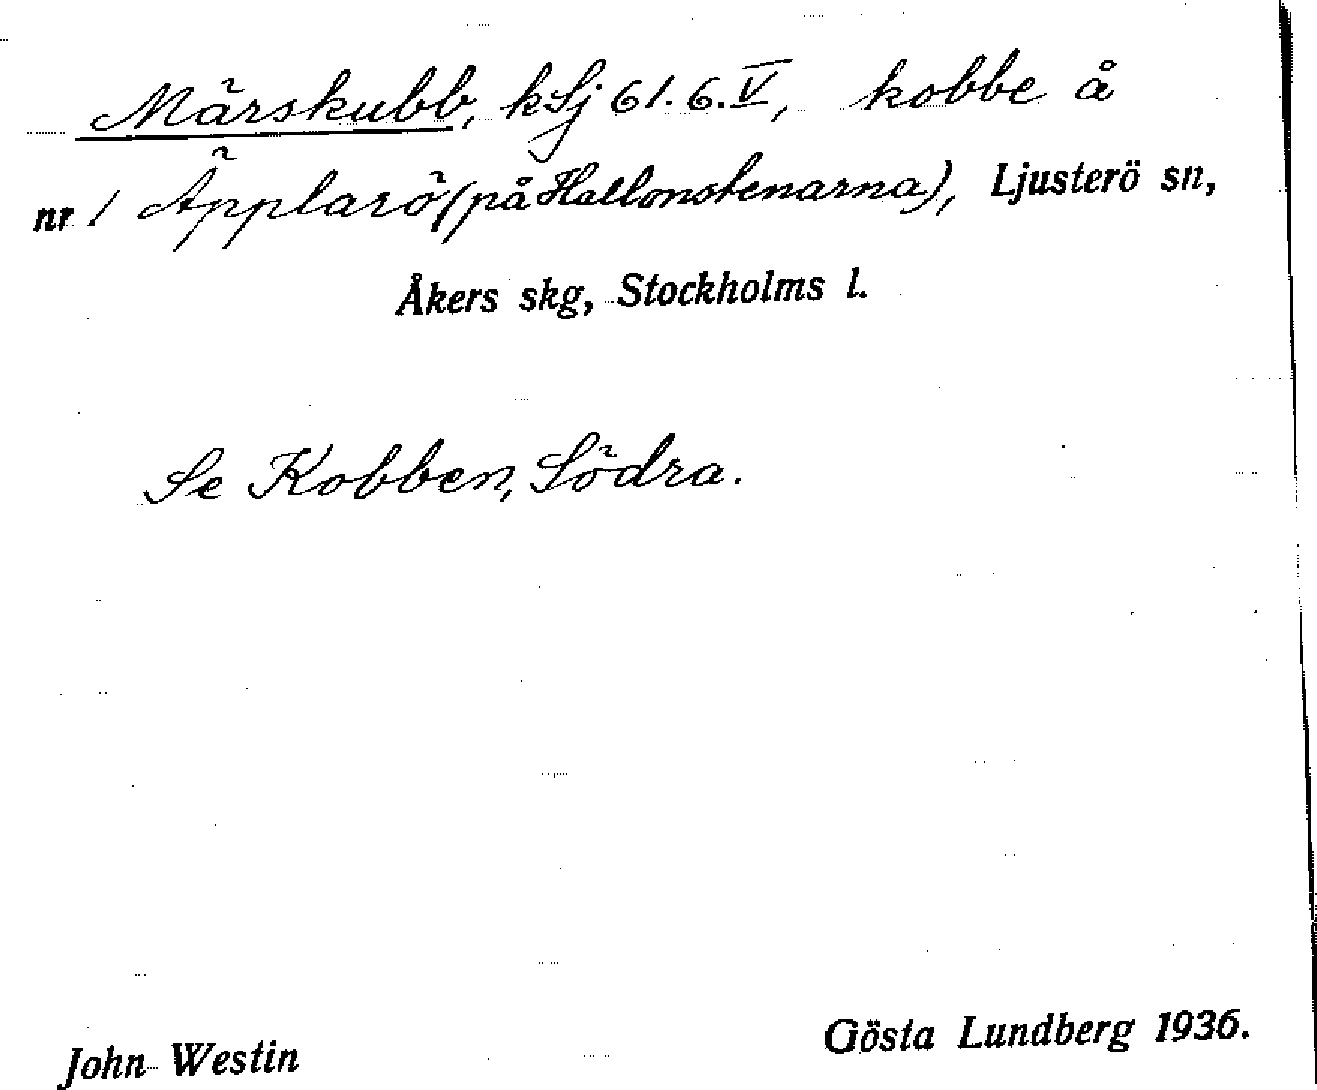 Märskubb, kSj 61.6.V, kobbe å
nr 1 Äpplarö (på Hallonstenarna), Ljusterö sn,
Åkers skg, Stockholms l.
Se Kobben, Södra.
John Westin
Gösta Lundberg 1936.